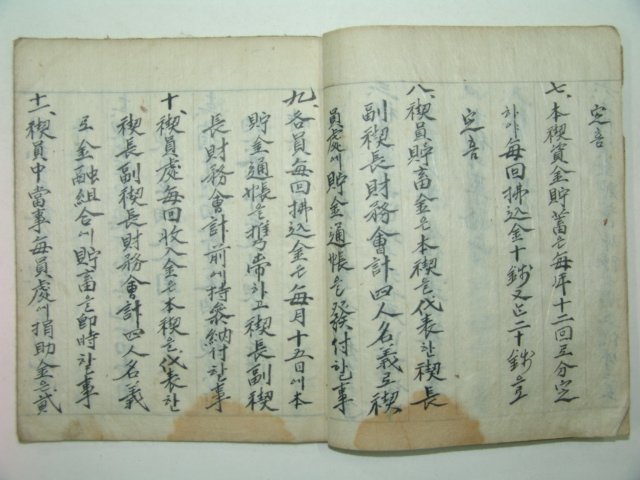 定홈
七、本稧資金貯蓄은每年十二回로分定
하야每回拂込金十錢又은二十錢으로
定홈
八、稧員貯畜金은本稧을代表한稧長
副稧長財務會計四人名義로稧
員處에貯金通帳을發付한事
九、各員每回拂込金은每月十五日에本
貯金通帳을携帶하고稧長副稧
長財務會計前에持參納付한事
十、稧員處每回收入金은本稧을代表한
稧長副稧長財務會計四人名義
로金融組合에貯畜을卽時한事
十一、稧員中當事每員處에捐助金은貳